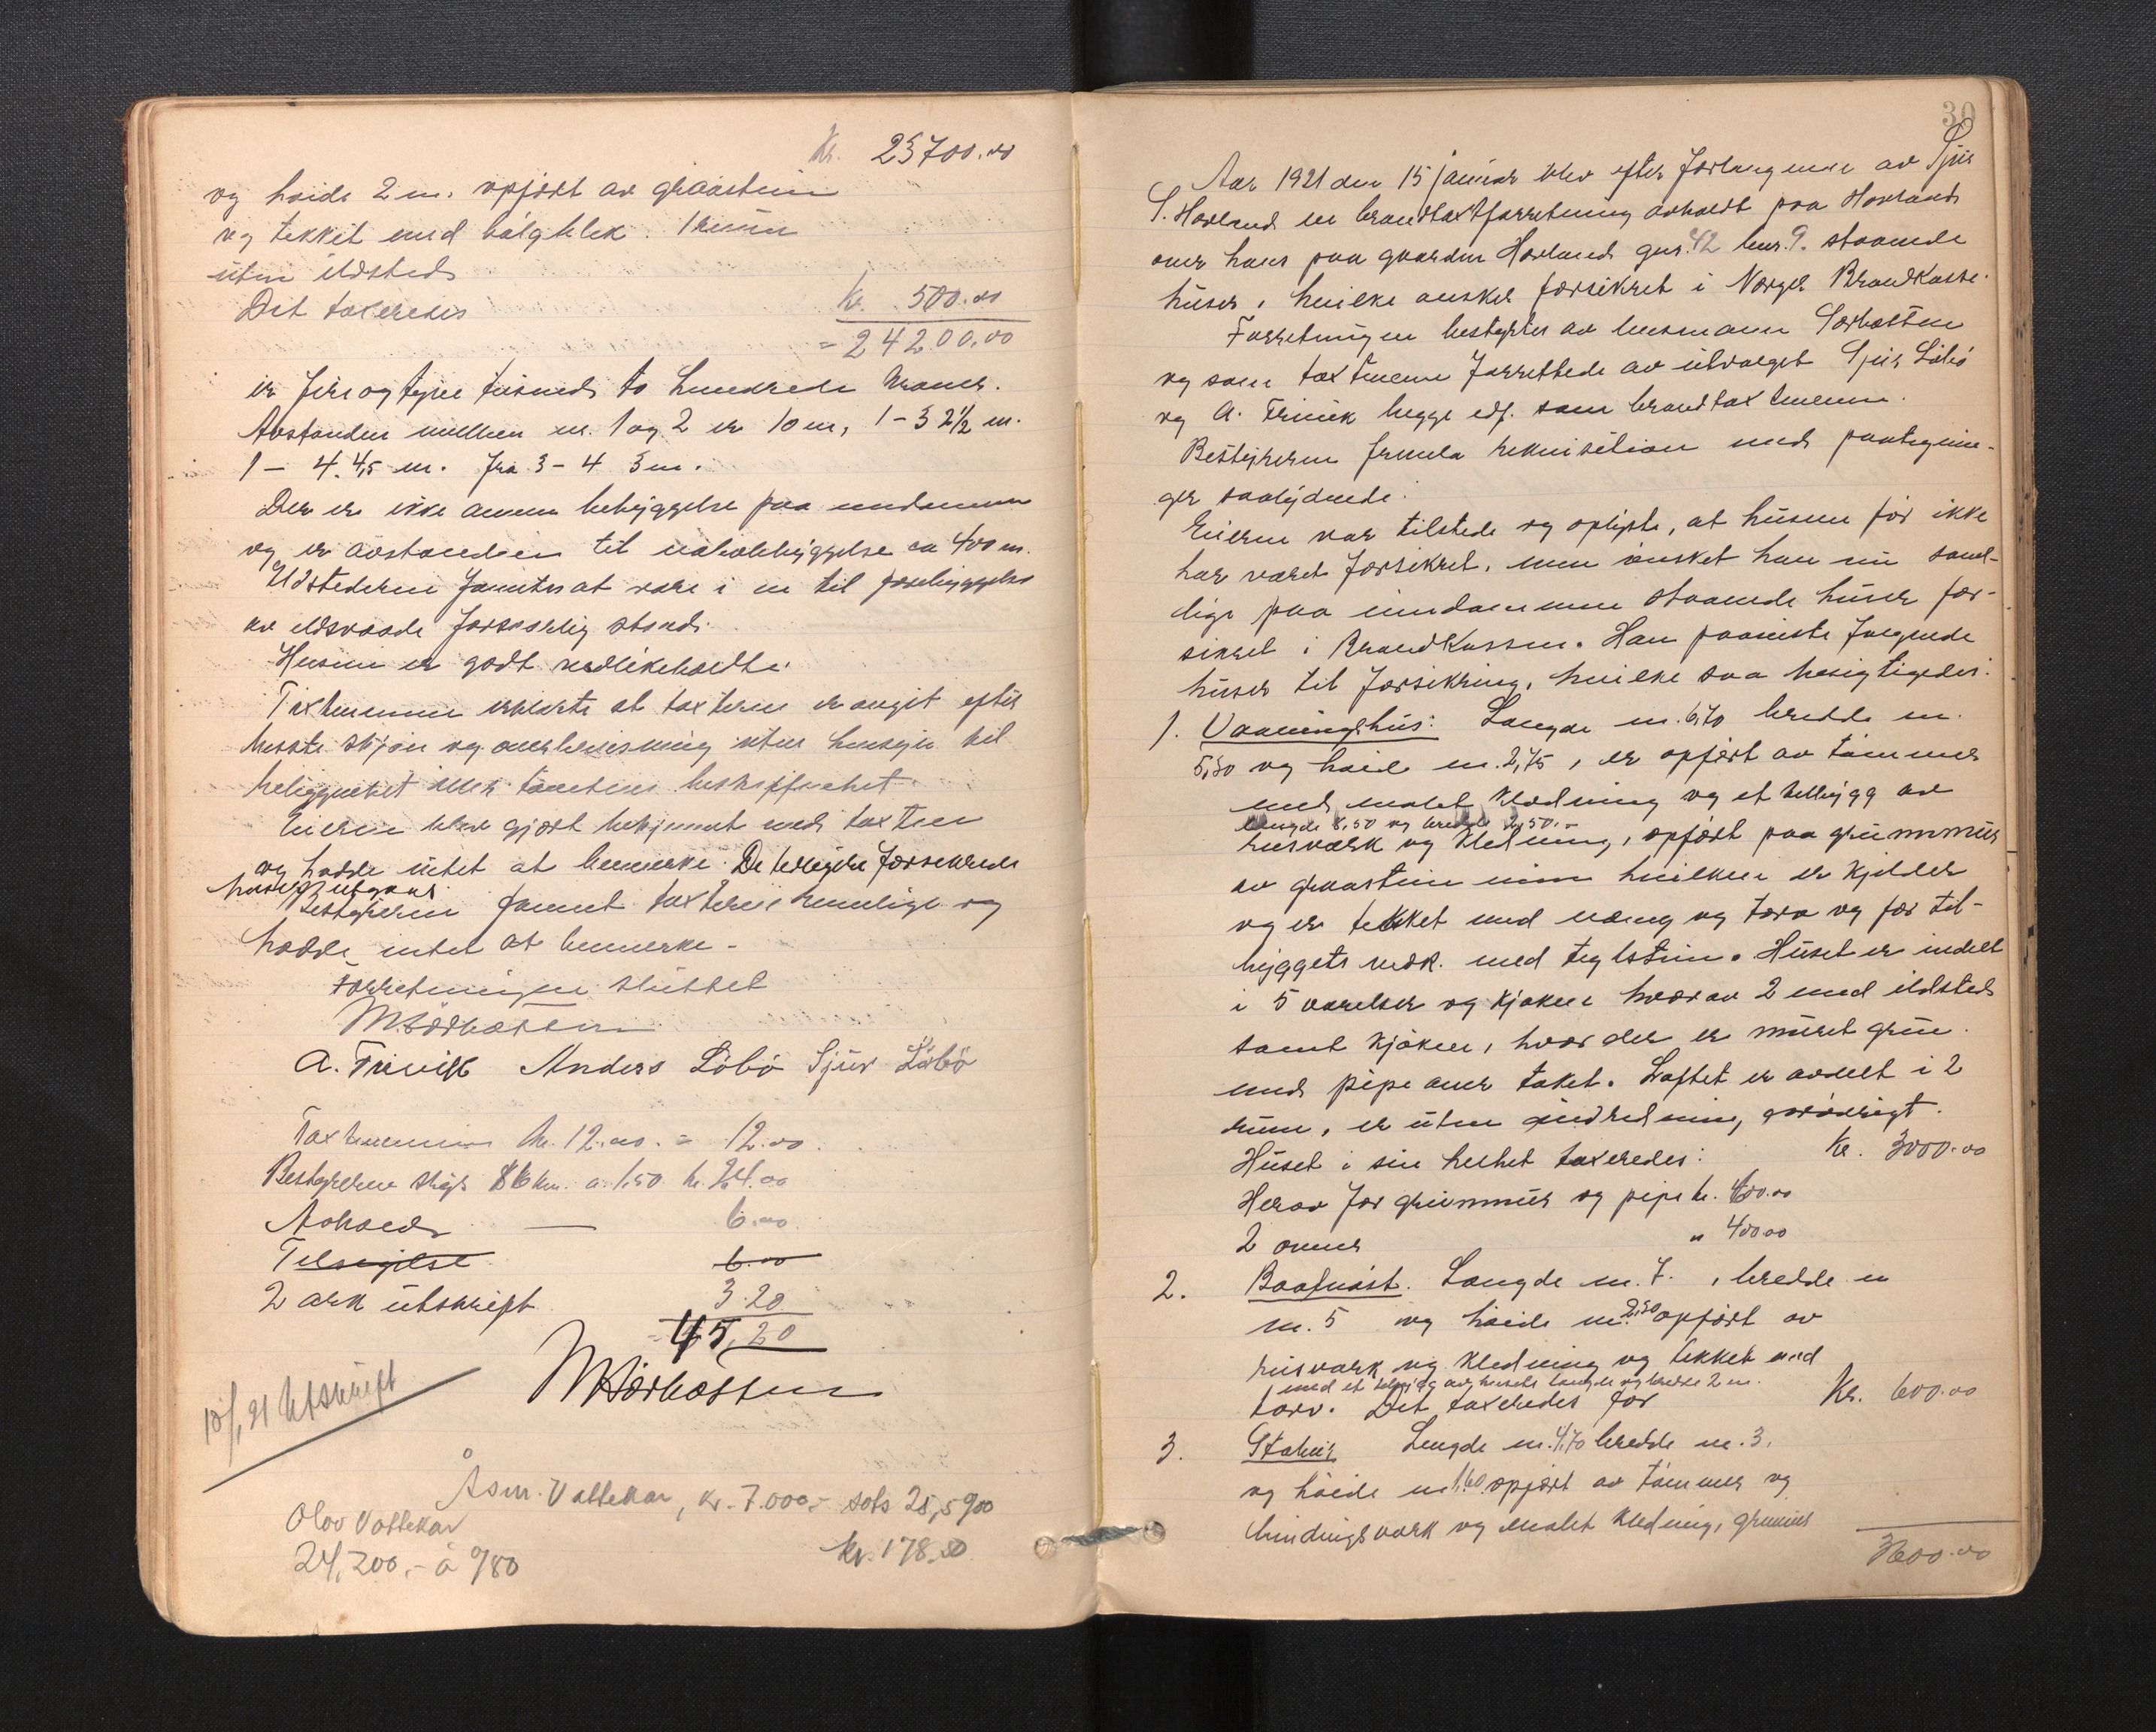 Kr. 23700.00
og høide 2 m. opført av graastein
og tekket med bølgblek. 1 rum
uten ildsted
Det taxeredes Kr. 500.00
= 24200.00
er fire og tyve tusend to hundrede kroner.
Avstanden mellem nr. 1 og 2 er 10 m, 1 - 3 2½ m.
1 - 4. 4,5 m. fra 3 - 4 3 m.
Der er ikke annen bebyggelse paa eiendommen
og er avstanden til nabobebyggelse ca 400 m.
Ildstederne fantes at være i en til forebyggelse
av ildsvaade forsvarlig stand.
Husene er godt vedlikeholdte.
Taxtmennene erklærte at taxterne er avgit efter
beste skjøn og overbevisning uten hensyn til
beliggenhet eller tomtens beskaffenhet.
Eieren blev gjort bekjennt med taxten
og hadde intet at bemerke. De tidligere forsikrede
huser utgaar.
Bestyreren fannt taxterne rimelige og
hadde intet at bemerke -
Forretningen sluttet
M Sørbotten
A. Trinik Anders Löbö Sjur Löbö
Taxtmennene kr. 12.00. = 12.00
Bestyreren skyds 16 km. a 1.50 kr. 24.00
Avhold — 6.00
Tilsigelse 6.00
2 ark utskrift 3.20
= 45,20
M Sørbotten
10/1 21 Utskrift
Åsm. Vallekar, kr. 7.000,- sots 25,5 900
Olav Vallekar
24,200,- à 980 kr. 178.20
30
Aar 1921 den 15 januar blev efter forlangende av Sjur
S. Hovland en brandtaxtforretning avholdt paa Hovland
over hans paa gaarden Hovland gnr. 42 bnr. 9. staaende
huser, hvilke ønskes forsikret i Norges Brandkasse.
Forretningen bestyrtes av lensmann Sørbotten
og som taxtmenn forrettede av utvalget Sjur Løbø
og A. Trinik begge edf. som brandtaxtmenn.
Bestyreren fremla rekvisition med paategnin-
ger saalydende:
Eieren var tilstede og oplyste, at husene før ikke
har været forsikret, men ønsket han nu samt-
lige paa eiendommen staaende huser for-
sikret i Brandkassen. Han paaviste følgende
huser til forsikring, hvilke saa besigtigedes:
1. Vaaningshus: Længde m. 6,70 bredde m.
5,30 og høide m. 2,75, er opført av tømmer
med malet klædning og et tilbygg av
længde 8,50 og bredde 2,50.-
reisværk og kledning, opført paa grunnmur
av graastein innen hvilken er kjelder
og er tekket med næver og torv og for til-
byggets vedk. med teglstein. Huset er inddelt
i 5 værelser og kjøken hvorav 2 med ildsted
samt kjøken, hvor der er muret grue
med pipe over taket. Loftet er avdelt i 2
rum, er uten indredning forøvrigt.
Huset i sin helhet taxeredes: Kr. 3000.00
Herav for grunnmur og pipe kr. 400.00
2 ovner " 400.00
2. Baatnøst. Længde m. 7. , bredde
m. 5 og høide m. 2,50 opført av
reisværk og kledning og tekket med
med et tilbygg av husets længde og bredde 2 m.
torv. Det taxeredes for Kr. 600.00
3. Stabur Længde m. 4,70 bredde m. 3.
og høide m 1,60 opført av tømmer og
bindingsværk og malet kledning, grunnmur
3600.00